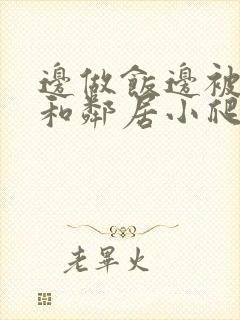 邊做飯邊被
和鄰居小爬
老畢火